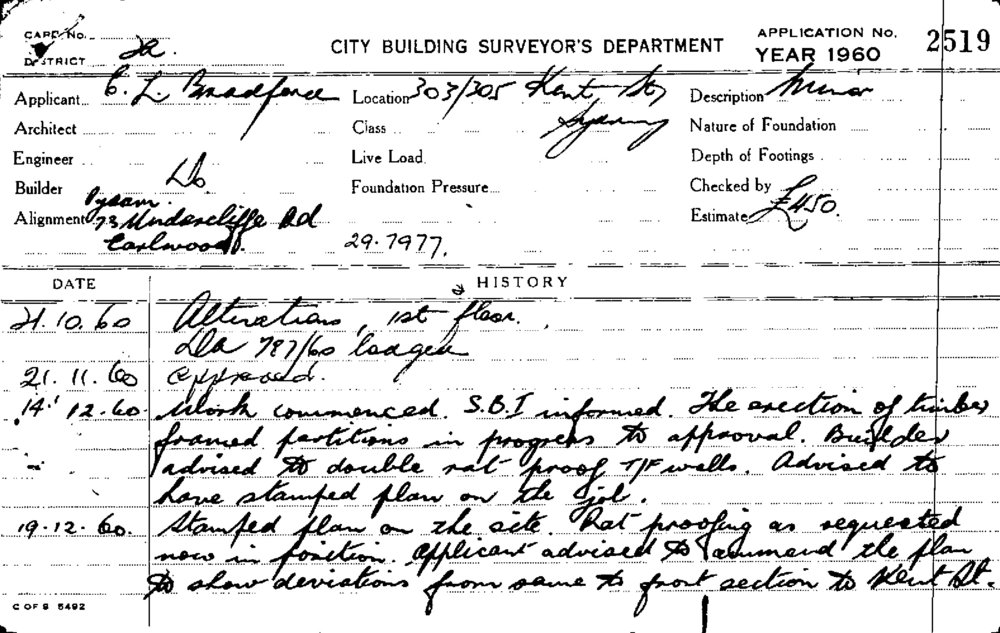 CARD No.
DISTRICT 2a.
CITY BUILDING SURVEYOR'S DEPARTMENT
APPLICATION No. 2519
YEAR 1960
Applicant C. L. Bradford Location 303/305 Kent St, Description Minor
Architect Class Sydney Nature of Foundation
Engineer Live Load Depth of Footings
Builder Do Foundation Pressure Checked by
Alignment 73 Undercliffe Rd Estimate £450.
Earlwood. 29.7977.
DATE HISTORY
21.10.60 Alterations, 1st floor.
Da 787/60 lodged
21.11.60 Approved.
14.12.60. Work commenced. S.B.I informed. The erection of timber
framed partitions in progress to approval. Builder
advised to double rat proof T/F walls. Advised to
have stamped plan on the job.
19.12.60. Stamped plan on the site. Rat proofing as requested
now in position. Applicant advised to ammend the plan
to show deviations from same to front section to Kent St.
C OF S 5492